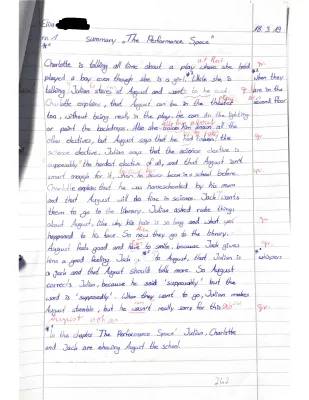 Elisa
18.3.19
summary „The Performance Space"
Charlotte is talking all time about a play where she had
played a boy even though she is a girl. While she is
talking Julian stares at August and wants to
when they are on the second floor
Charlotte explains, that August can be in the theatre
too, without being really in the play. He can do the lighting
or paint the backdrops. Also she
other electives, but August says that he
science elective. Julian says that the science elective is
supposably the hardest elective of all, and that August isn't
smart enough for it, when he never been in a school before.
Charlotte explain that he was homeschooled by his mum
and that August will do fine in science. Jack wants
them to go to the library. Julian asked rude things
about August, like why his hair is so long and what
happened to his face. So now they go to the library.
August feels good and have to smile, because Jack gives
him a good feeling. Jack to August, that Julian is
whispers
a jerk and that August should talk more. So August
corrects Julian, because he said 'supposably' but the
word is 'supposedly'. When they want to go, Julian makes
August stumble, but he wasn't really sorry for this
In the chapter 'The Performance Space' Julian, Charlotte
and Jack are showing August the school.
242